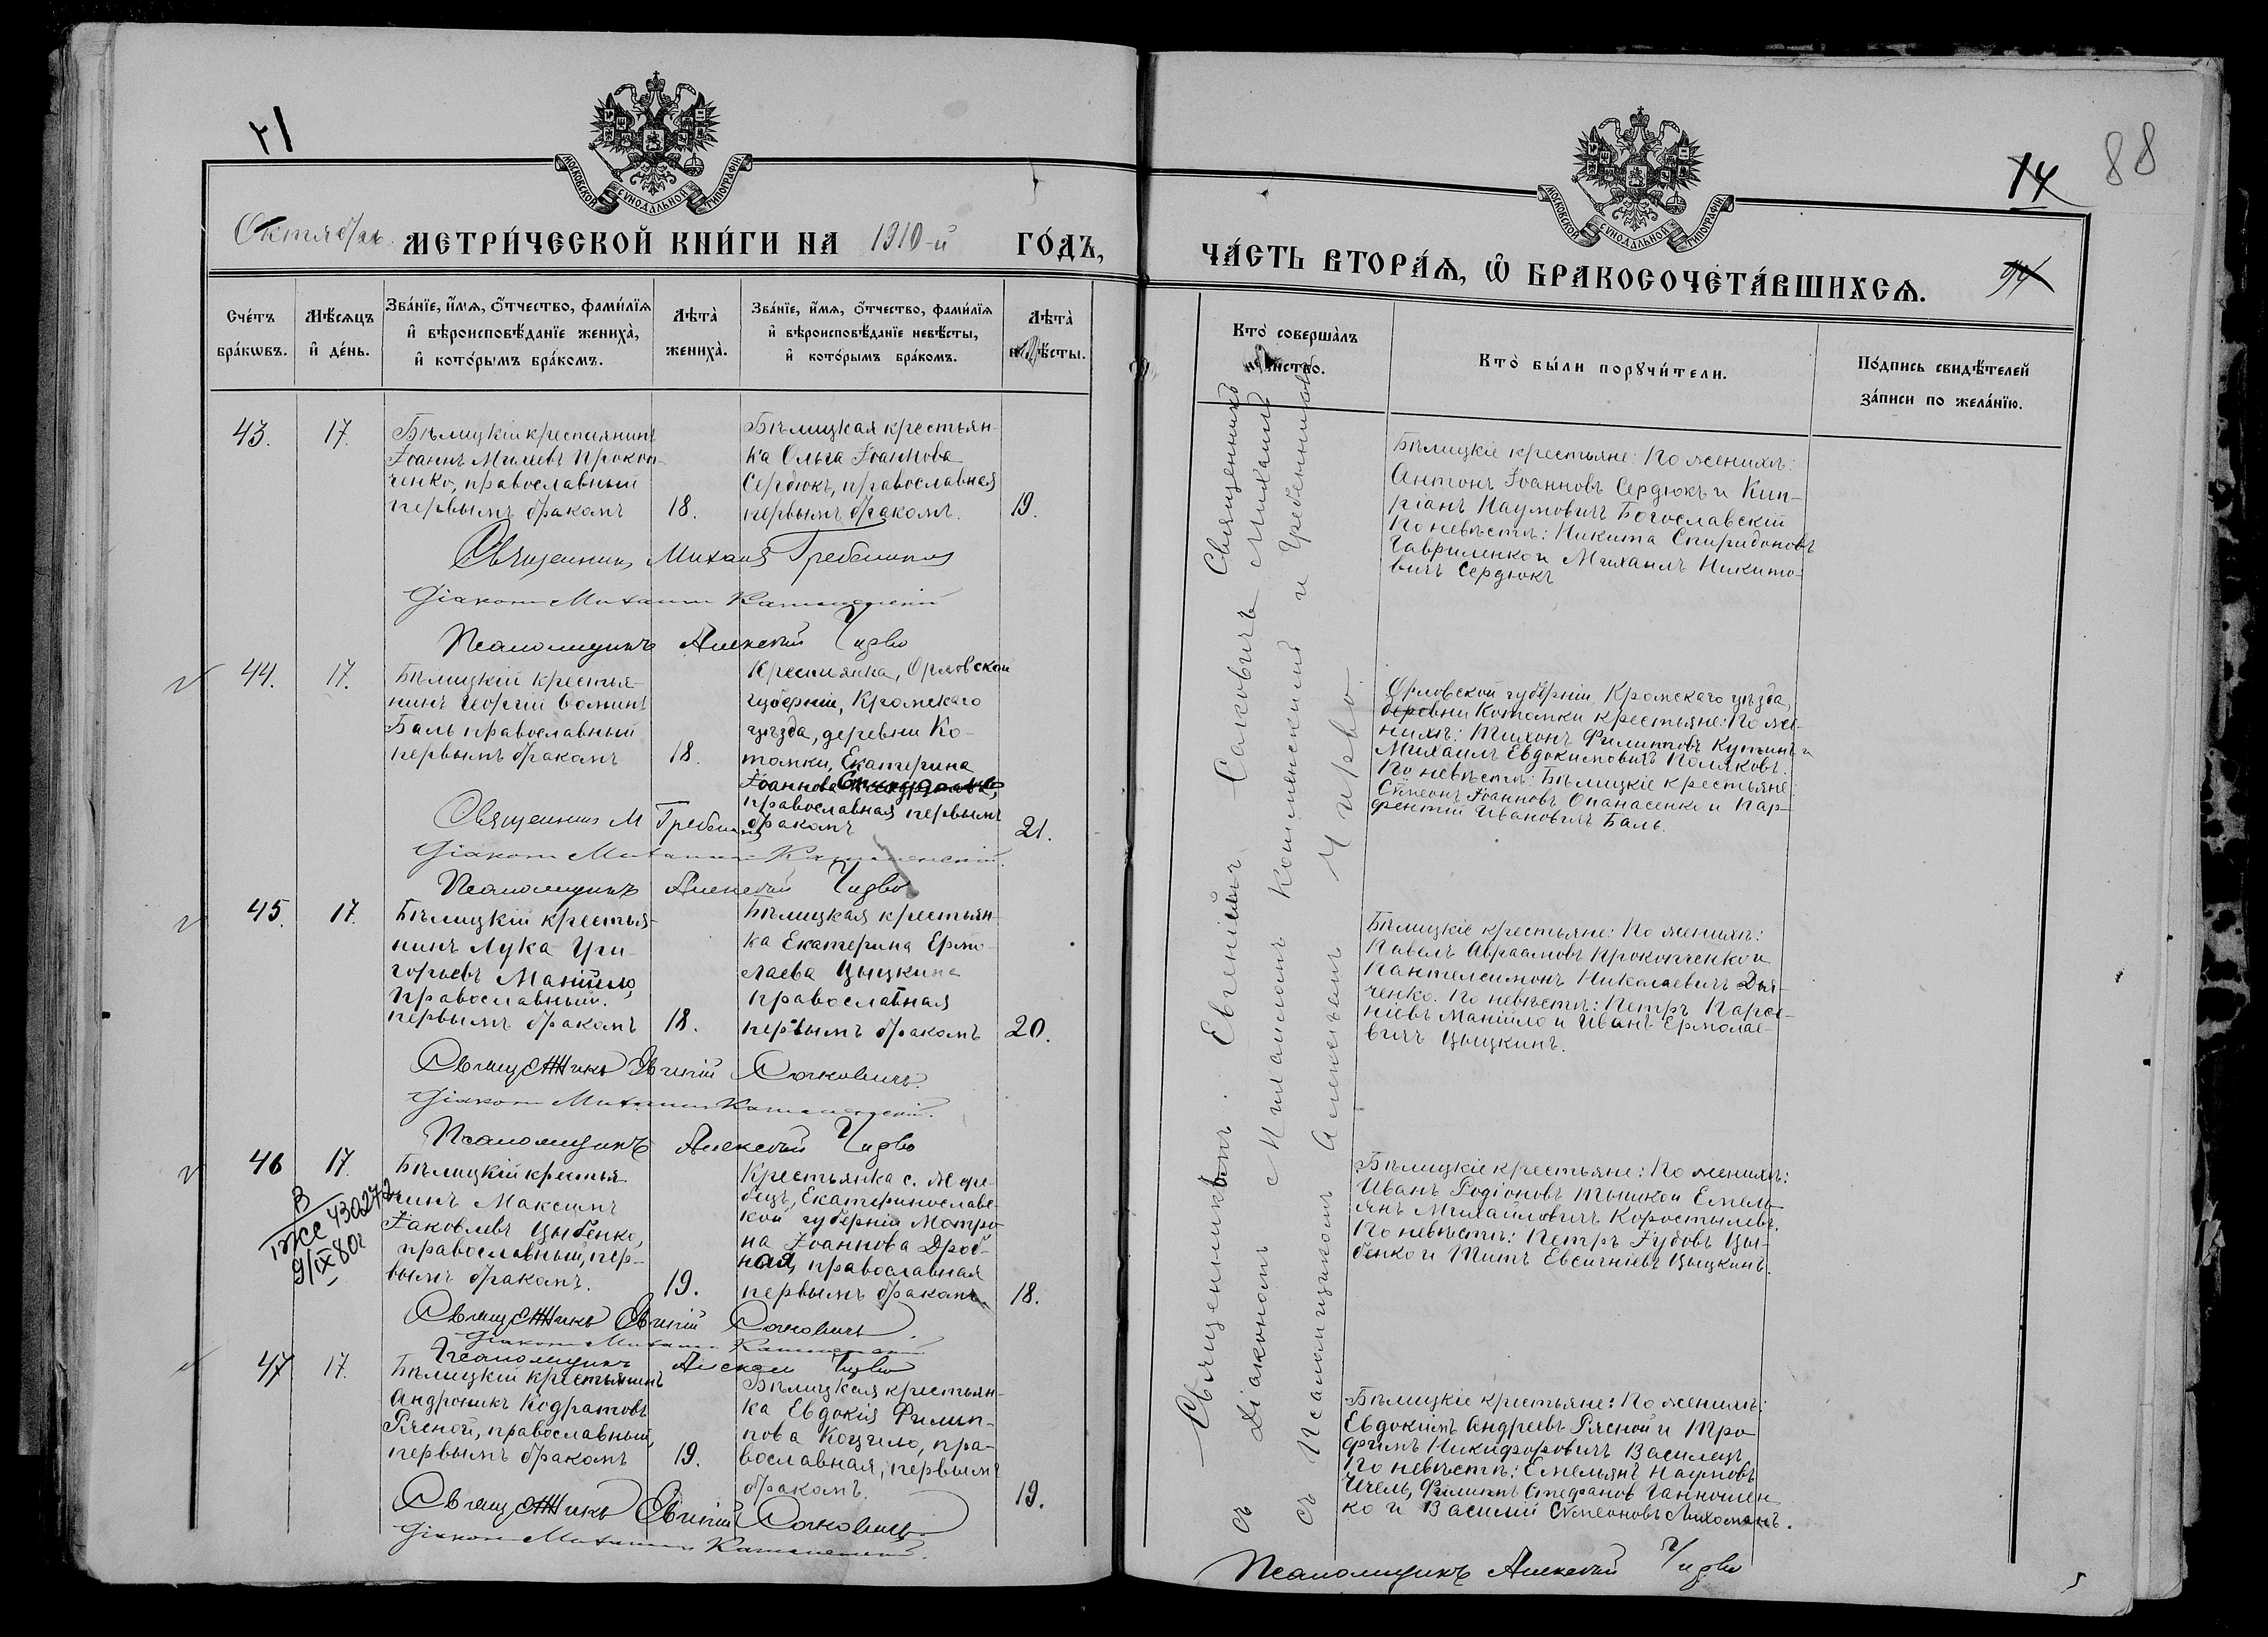 71
МОСКОВСКОЙ СѴНОДАЛЬНОЙ ТИПОГРАФІИ
Октябрь МЕТРИ́ЧЕСКОЙ КНИ́ГИ НА 1910-й ГО́ДЪ,
Сче́тъ бра́кѡвъ.
Мѣ́сяцъ и҆ де́нь.
Зва́нїе, и҆́мѧ, ѻ҆́тчество, фами́лїѧ
и҆ вѣроисповѣ́данїе жениха̀,
и҆ кото́рымъ бра́комъ.
Лѣта̀ жениха̀.
Зва́нїе, и҆́мѧ, ѻ҆́тчество, фами́лїѧ
и҆ вѣроисповѣ́данїе невѣ́сты,
и҆ кото́рымъ бра́комъ.
Лѣта̀ невѣ́сты.
43. 17.
Бѣлицкій крестьянинъ
Іоаннъ Миліевъ Прокоп-
ченко, православный
первымъ бракомъ 18.
Бѣлицкая крестьян-
ка Ольга Іоаннова
Сердюкъ, православная
первымъ бракомъ. 19.
Священникъ Михаил Гребенников
Діаконъ Михаилъ Каминскій
Псаломщикъ Алексѣй Чирво
44. 17.
Бѣлицкій крестья-
нинъ Георгій Ѳоминъ
Баль православный
первымъ бракомъ 18.
Крестьянка, Орловской
губерніи, Кромскаго
уѣзда, деревни Ко-
томки, Екатерина
Іоаннова
православная первымъ
бракомъ 21.
Священникъ М Гребенников
Діаконъ Михаилъ Каминскій.
Псаломщикъ Алексѣй Чирво
45. 17.
Бѣлицкій крестья-
нинъ Лука Гри-
горьевъ Манійло,
православный.
первымъ бракомъ 18.
Бѣлицкая крестьян-
ка Екатерина Ермо-
лаева Цыцкина
православная
первымъ бракомъ 20.
Священникъ Евгеній Сакович.
Діаконъ Михаилъ Каминскій.
Псаломщикъ Алексѣй Чирво
46 17.
Бѣлицкій крестья-
нинъ Максимъ
Іаковлевъ Цыбенко,
православный, пер-
вымъ бракомъ. 19.
Крестьянка с. Жере-
бецъ, Екатеринослав-
кой губерніи Матро-
на Іоаннова Дроб-
ная, православная
первымъ бракомъ 18.
9/IX 80г
Священникъ Евгеній Сакович.
Діаконъ Михаилъ Каминскій
Псаломщикъ Алексѣй Чирво
47 17.
Бѣлицкій крестьянинъ
Андроникъ Кодратовъ
Рясной, православный,
первымъ бракомъ 19.
Бѣлицкая крестьян-
ка Евдокія Филип-
пова Коцило, пра-
вославная, первымъ
бракомъ. 19.
Священникъ Евгеній Сакович
Діаконъ Михаилъ Каминскій.
МОСКОВСКОЙ СѴНОДАЛЬНОЙ ТИПОГРАФІИ
14
88
94
ЧА́СТЬ ВТОРА́Ѧ, Ѽ БРАКОСОЧЕТА́ВШИХСѦ.
Кто̀ соверша̀лъ таинство.
Кто̀ бы́ли порꙋчи́тели.
По́дпись свидѣ́телей
за́писи по жела́нїю.
Священникомъ Евгеніемъ Саковичъ Священникъ
съ Діакономъ Михаиломъ Каминскимъ и Гребенниковъ
съ Псаломщикомъ Алексѣемъ Чирво
Бѣлицкіе крестьяне: По женихѣ:
Антонъ Іоанновъ Сердюкъ и Кип-
ріанъ Наумовичъ Богославскій
По невѣстѣ: Никита Спиридоновъ
Гавриленко и Михаилъ Никито-
вичъ Сердюкъ
Орловской губерніи Кромскаго уѣзда,
деревни Котомки крестьяне: По же-
нихѣ: Тихонъ Филипповъ Кутинъ и
Михаилъ Евдокимовичъ Поляковъ.
По невѣстѣ: Бѣлицкіе крестьяне:
Сѵмеонъ Іоанновъ Опанасенко и Пар-
фентій Ивановичъ Баль.
Бѣлицкіе крестьяне: По женихѣ:
Павелъ Авраамовъ Прокопченко и
Пантелеимонъ Николаевичъ Дья-
ченко. По невѣстѣ: Петръ Парѳе-
ніевъ Манійло и Иванъ Ермолае-
вичъ Цыцкинъ.
Бѣлицкіе крестьяне: По женихѣ:
Иванъ Родіоновъ Тышко и Емель-
янъ Михайловичъ Коростылевъ.
По невѣстѣ: Петръ Іудовъ Цы-
бенко и Титъ Евсигніевъ Цыцкинъ.
Бѣлицкіе крестьяне: По женихѣ:
Евдокимъ Андреевъ Рясной и Тро-
фимъ Никифоровичъ Василецъ
По невѣстѣ: Емельянъ Наумовъ
Чмель, Филиппъ Стефановъ Ганношен-
ко и Василій Сѵмеоновъ Лихоманъ.
Псаломщикъ Алексѣй Чирво